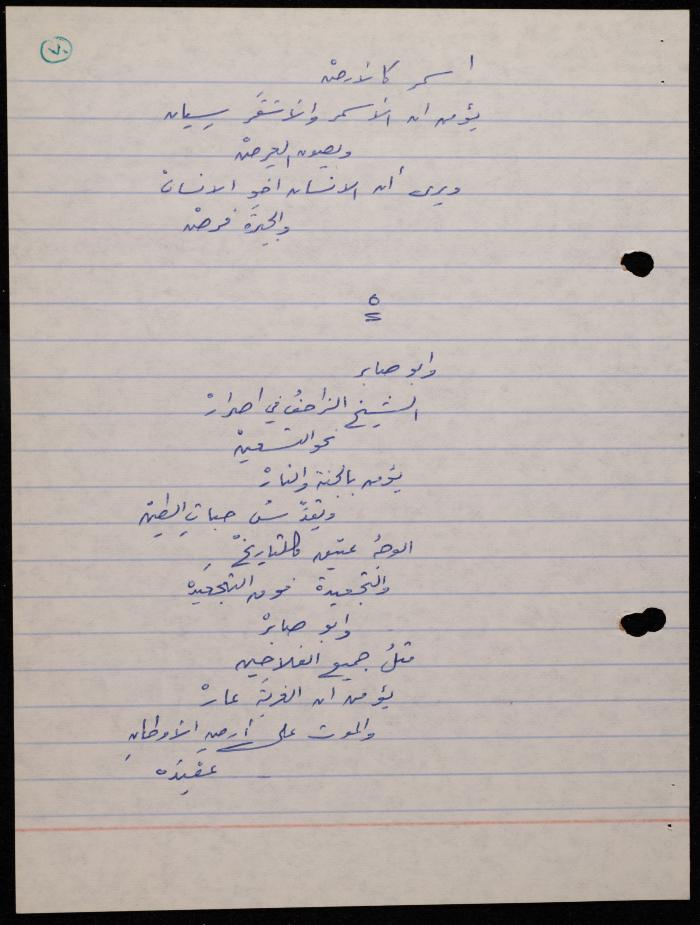 ٧٠
اسمر كالأرضْ
يؤمن ان الأسمر والأشقَر سيان
ويصون العرضْ
ويرى أن الانسان اخو الانسانْ
والجيَرة فرضْ
٥
وابو صابر
الشيخ الزاحفُ في اصرارْ
نحو التسعينْ
يؤمن بالجنة والنارْ
ويقدّسُ حباتِ الطينْ
الوجهُ عتيق كالتاريخْ
والتجعيدة فوق التجعيدهْ
وابو صابرْ
مثلُ جميع الفلاحين
يؤمن ان الغربَة عارْ
والموت على أرضِ الأوطانِ
عقيَده